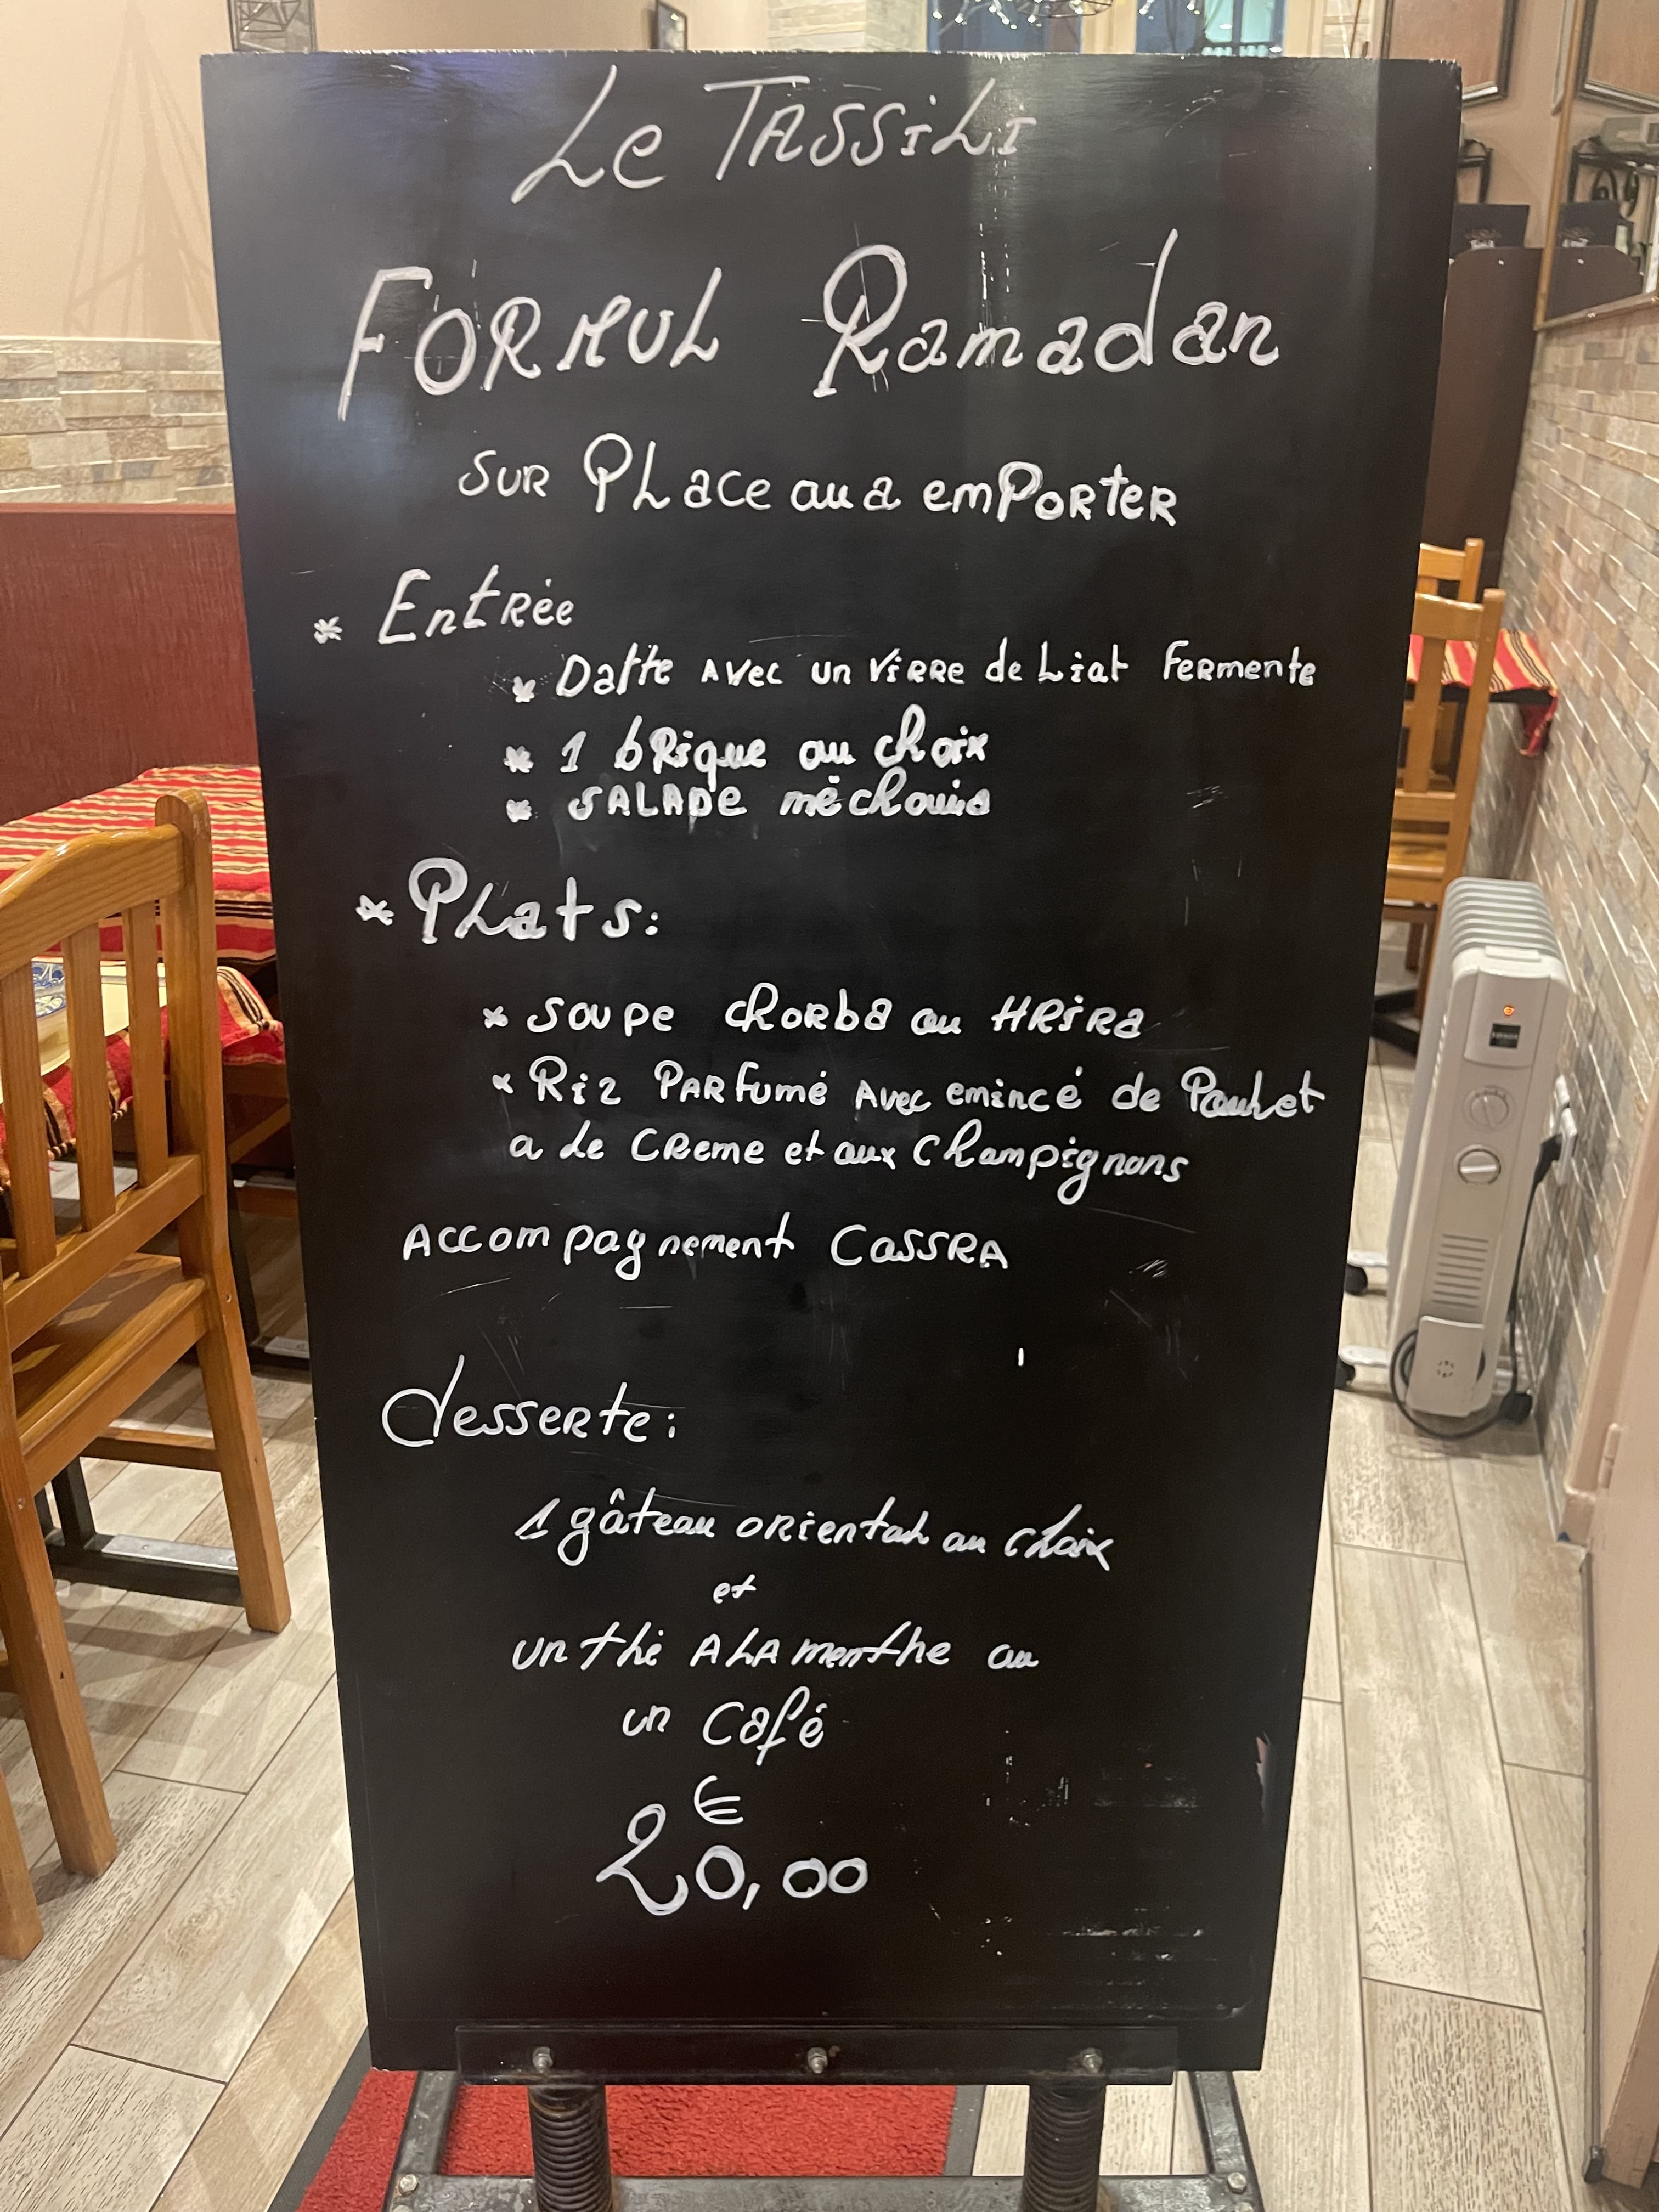 Le TASSiLi
FORMUL Ramadan
SUR PLace au a emPORTER
* EntRée
* Datte AVec un ViRRe de Liat FeRmente
* 1 bRique au choix
* SALADE méchouia
* PLats:
* soupe choRba au HRiRa
* Riz PARfumé Avec emincé de Poulet
a de CReme et aux champignons
Accompagnement CASSRA
desseRte:
1 gâteau oRiental au choix
et
un thé A LA menthe au
un Café
€
20,00